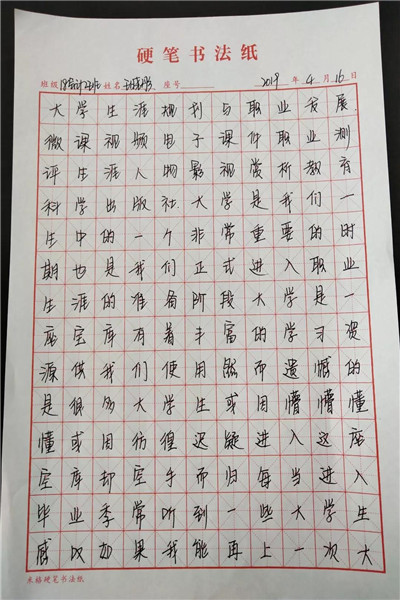 硬笔书法纸
班级 18会计2班 姓名 座号 2019年4月16日
大学生涯规划与职业发展
微课视频电子课件职业测
评生涯人物影视赏析教育
科学出版社大学是我们一
生中的一个非常重要的时
期也是我们正式进入职业
生涯的准备阶段大学是一
座宝库有着丰富的学习资
源供我们使用然而遗憾的
是很多大学生或因懵懵懂
懂或因彷徨迟疑进入这座
宝库却空手而归每当进入
毕业季常听到一些大学生
感叹如果我能再上一次大
米格硬笔书法纸